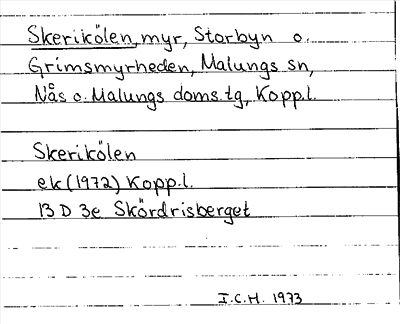 Skerikölen, myr, Storbyn o.
Grimsmyrheden, Malungs sn,
Nås o. Malungs doms.tg, Kopp.l.
Skerikölen
ek (1972) Kopp.l.
13 D 3e Skördrisberget
I.C.H. 1973